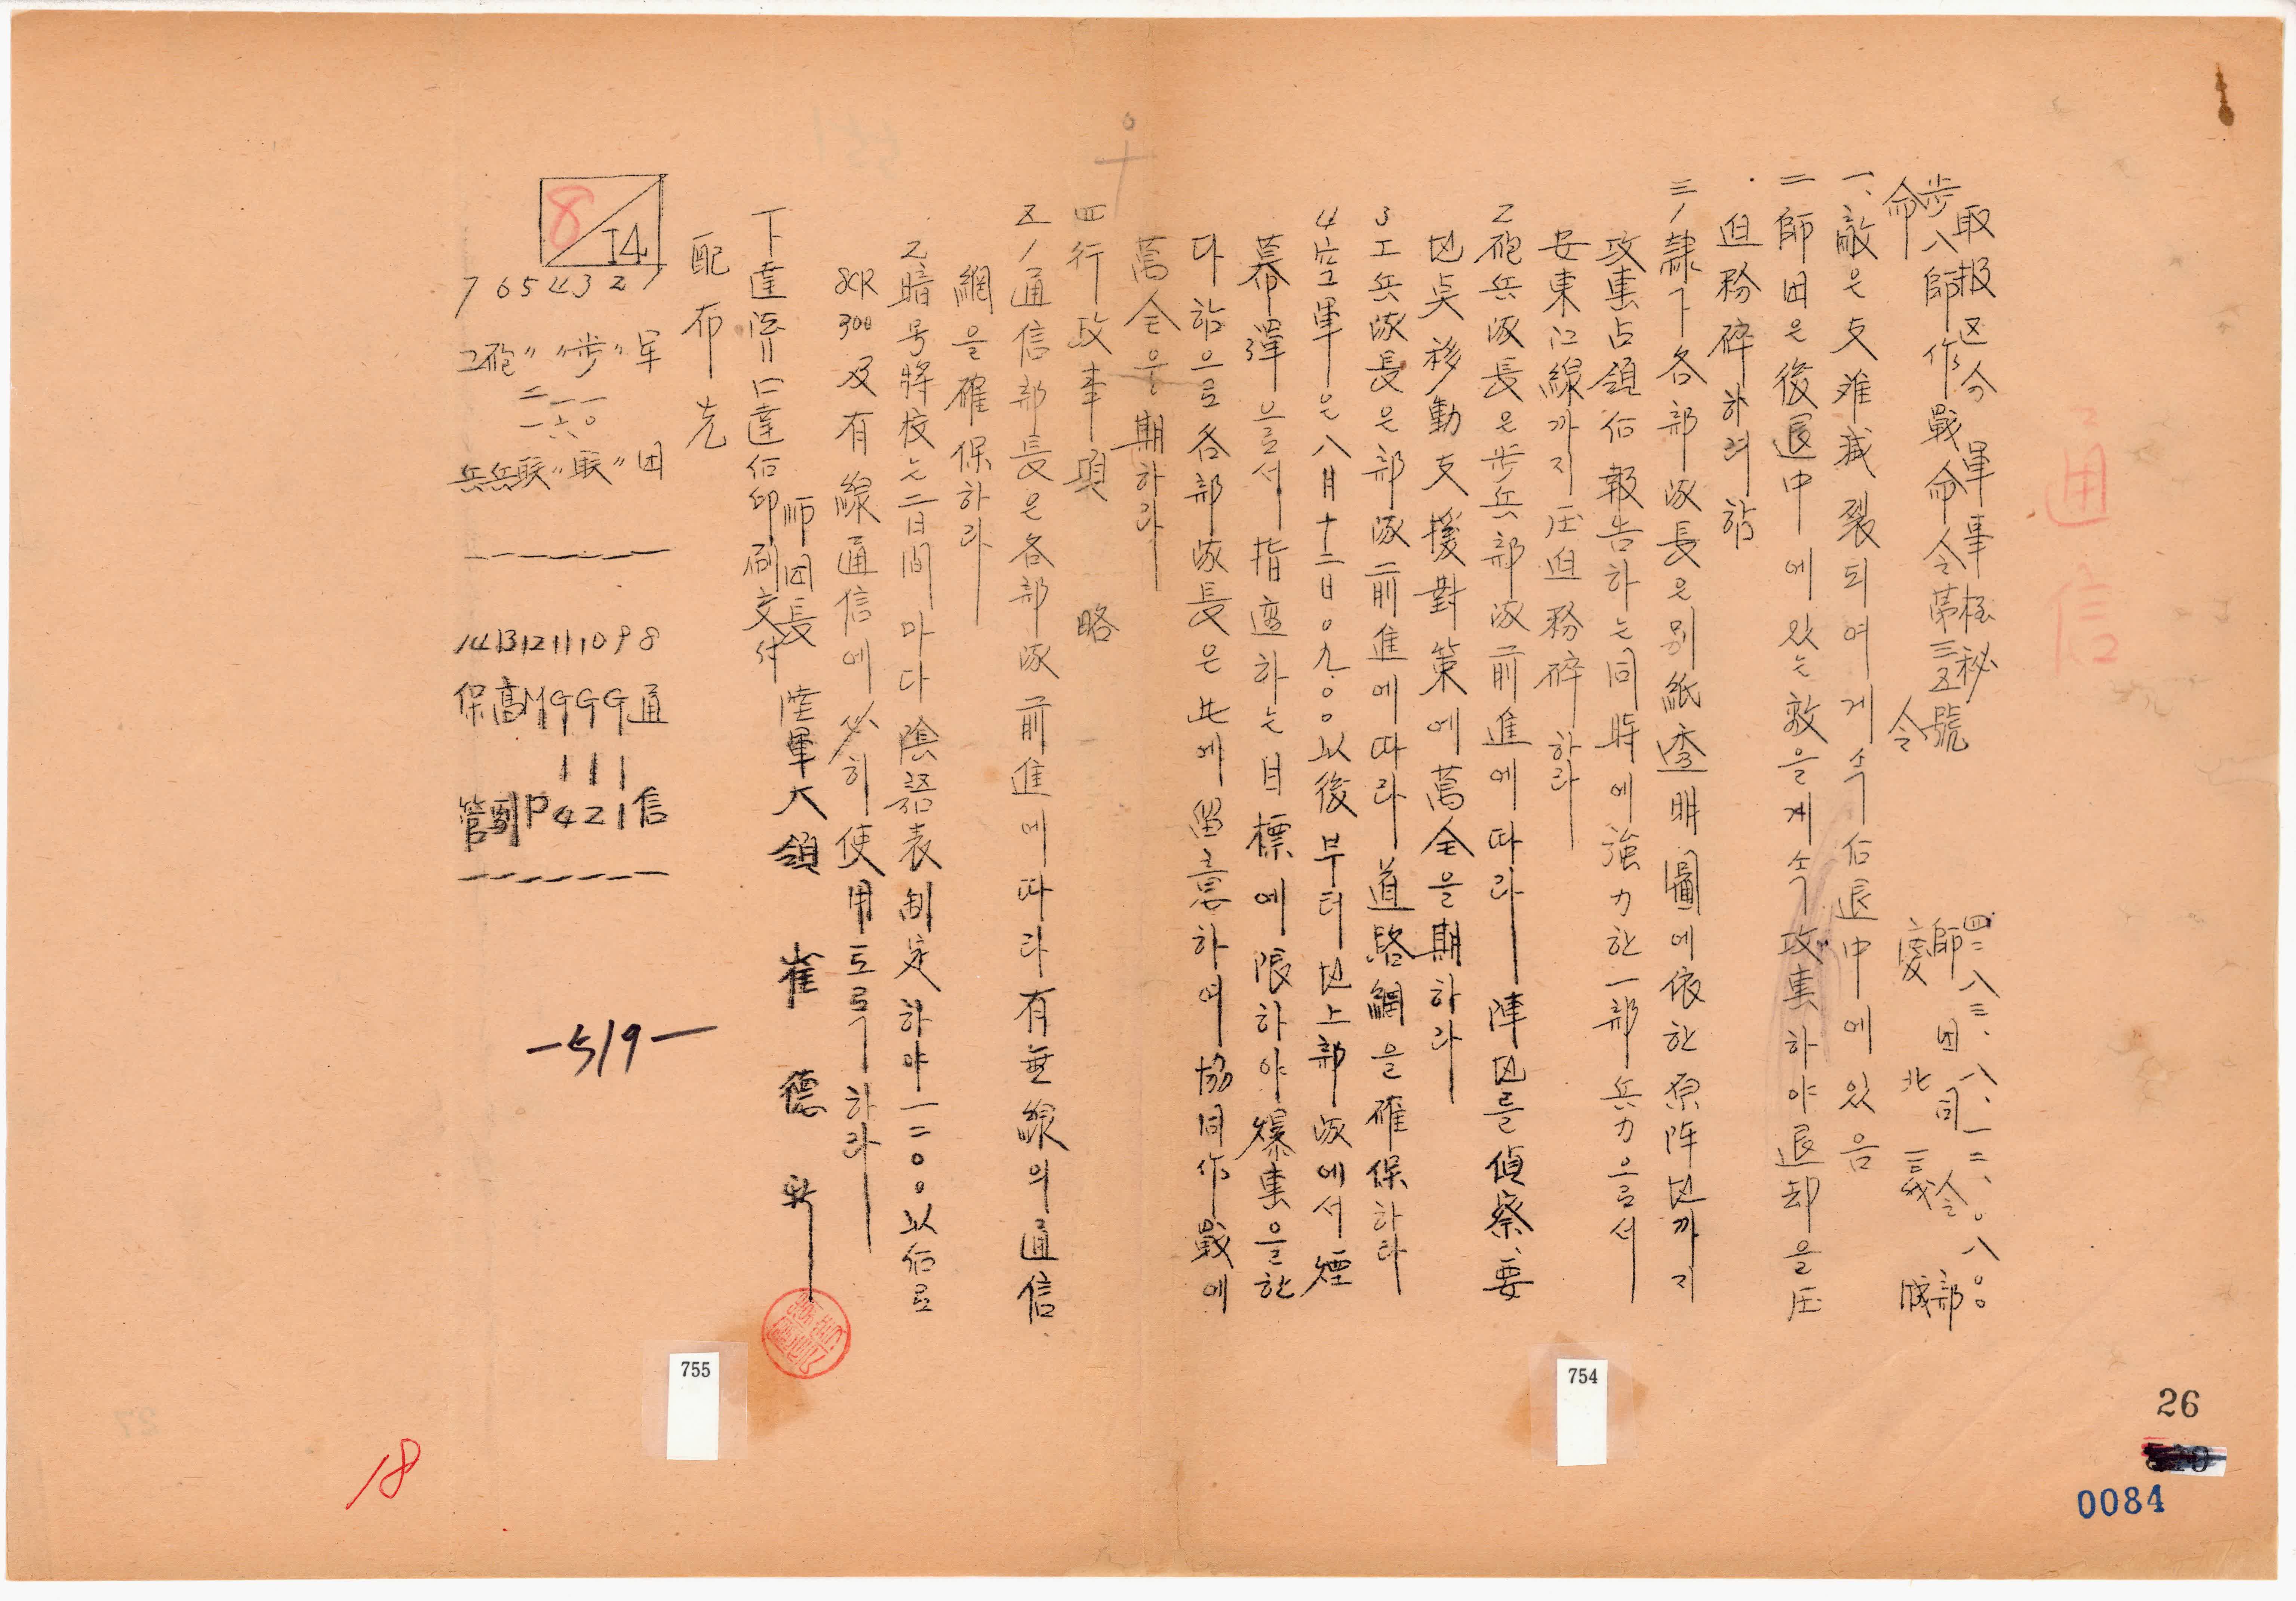 通信
取扱区分 軍事極秘 四二八三.八.一二.〇八〇〇
步八師作戰命令第三五號 師団司令部
命令 慶北 義城
一、敵은支離滅裂되여게속后退中에있음
二 師団은後退中에있는敵을게속攻擊하야退却을圧
迫粉碎하려함
三 1 隷下各部隊長은別紙透明圖에依한原陣地까지
攻擊占領后報告하는同時에強力한一部兵力으로서
安東江線까지圧迫粉碎하라
2 砲兵隊長은步兵部隊前進에따라陣地를偵察、要
地点移動支援對策에萬全을期하라
3 工兵隊長은部隊前進에따라道路網을確保하라
4 空軍은八月十二日〇九〇〇以後부터地上部隊에서煙
幕彈으로서指適하는目標에限하야爆擊을한
다함으로各部隊長은此에留意하여協同作戰에
萬全을期하라
四 行政事項 略
五 1 通信部長은各部隊前進에따라有無線의通信
網을確保하라
2 暗号將校는二日間마다陰語表制定하야一二〇〇以后로
SCR300及有線通信에必히使用토록하라
下達法=口達后印刷交付
師団長 陸軍大領 崔德
配布先
8/14
1 軍団
2 〃〃
3 步一〇联
4 〃一六〃
5 〃二一联
6 砲兵
7 工兵
8 通信
9 G-1
10 G-2
11 G-4
12 MP
13 高副
14 保管
-519-
755
754
18
26
0084